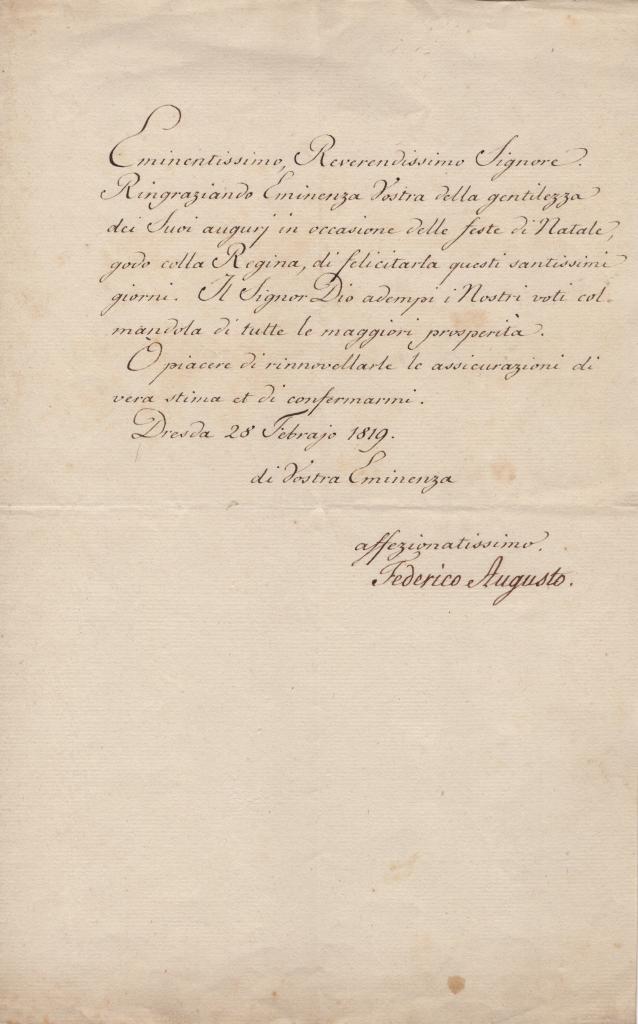 Eminentissimo, Reverendissimo Signore.
Ringraziando Eminenza Vostra della gentilezza
dei Suoi augurj in occasione delle feste di Natale,
godo colla Regina, di felicitarla questi santissimi
giorni. Il Signor Dio adempi i Nostri voti col-
mandola di tutte le maggiori prosperità.
Ò piacere di rinnovellarle le assicurazioni di
vera stima et di confermarmi.
Dresda 28 Febrajo 1819.
di Vostra Eminenza
affezionatissimo.
Federico Augusto.